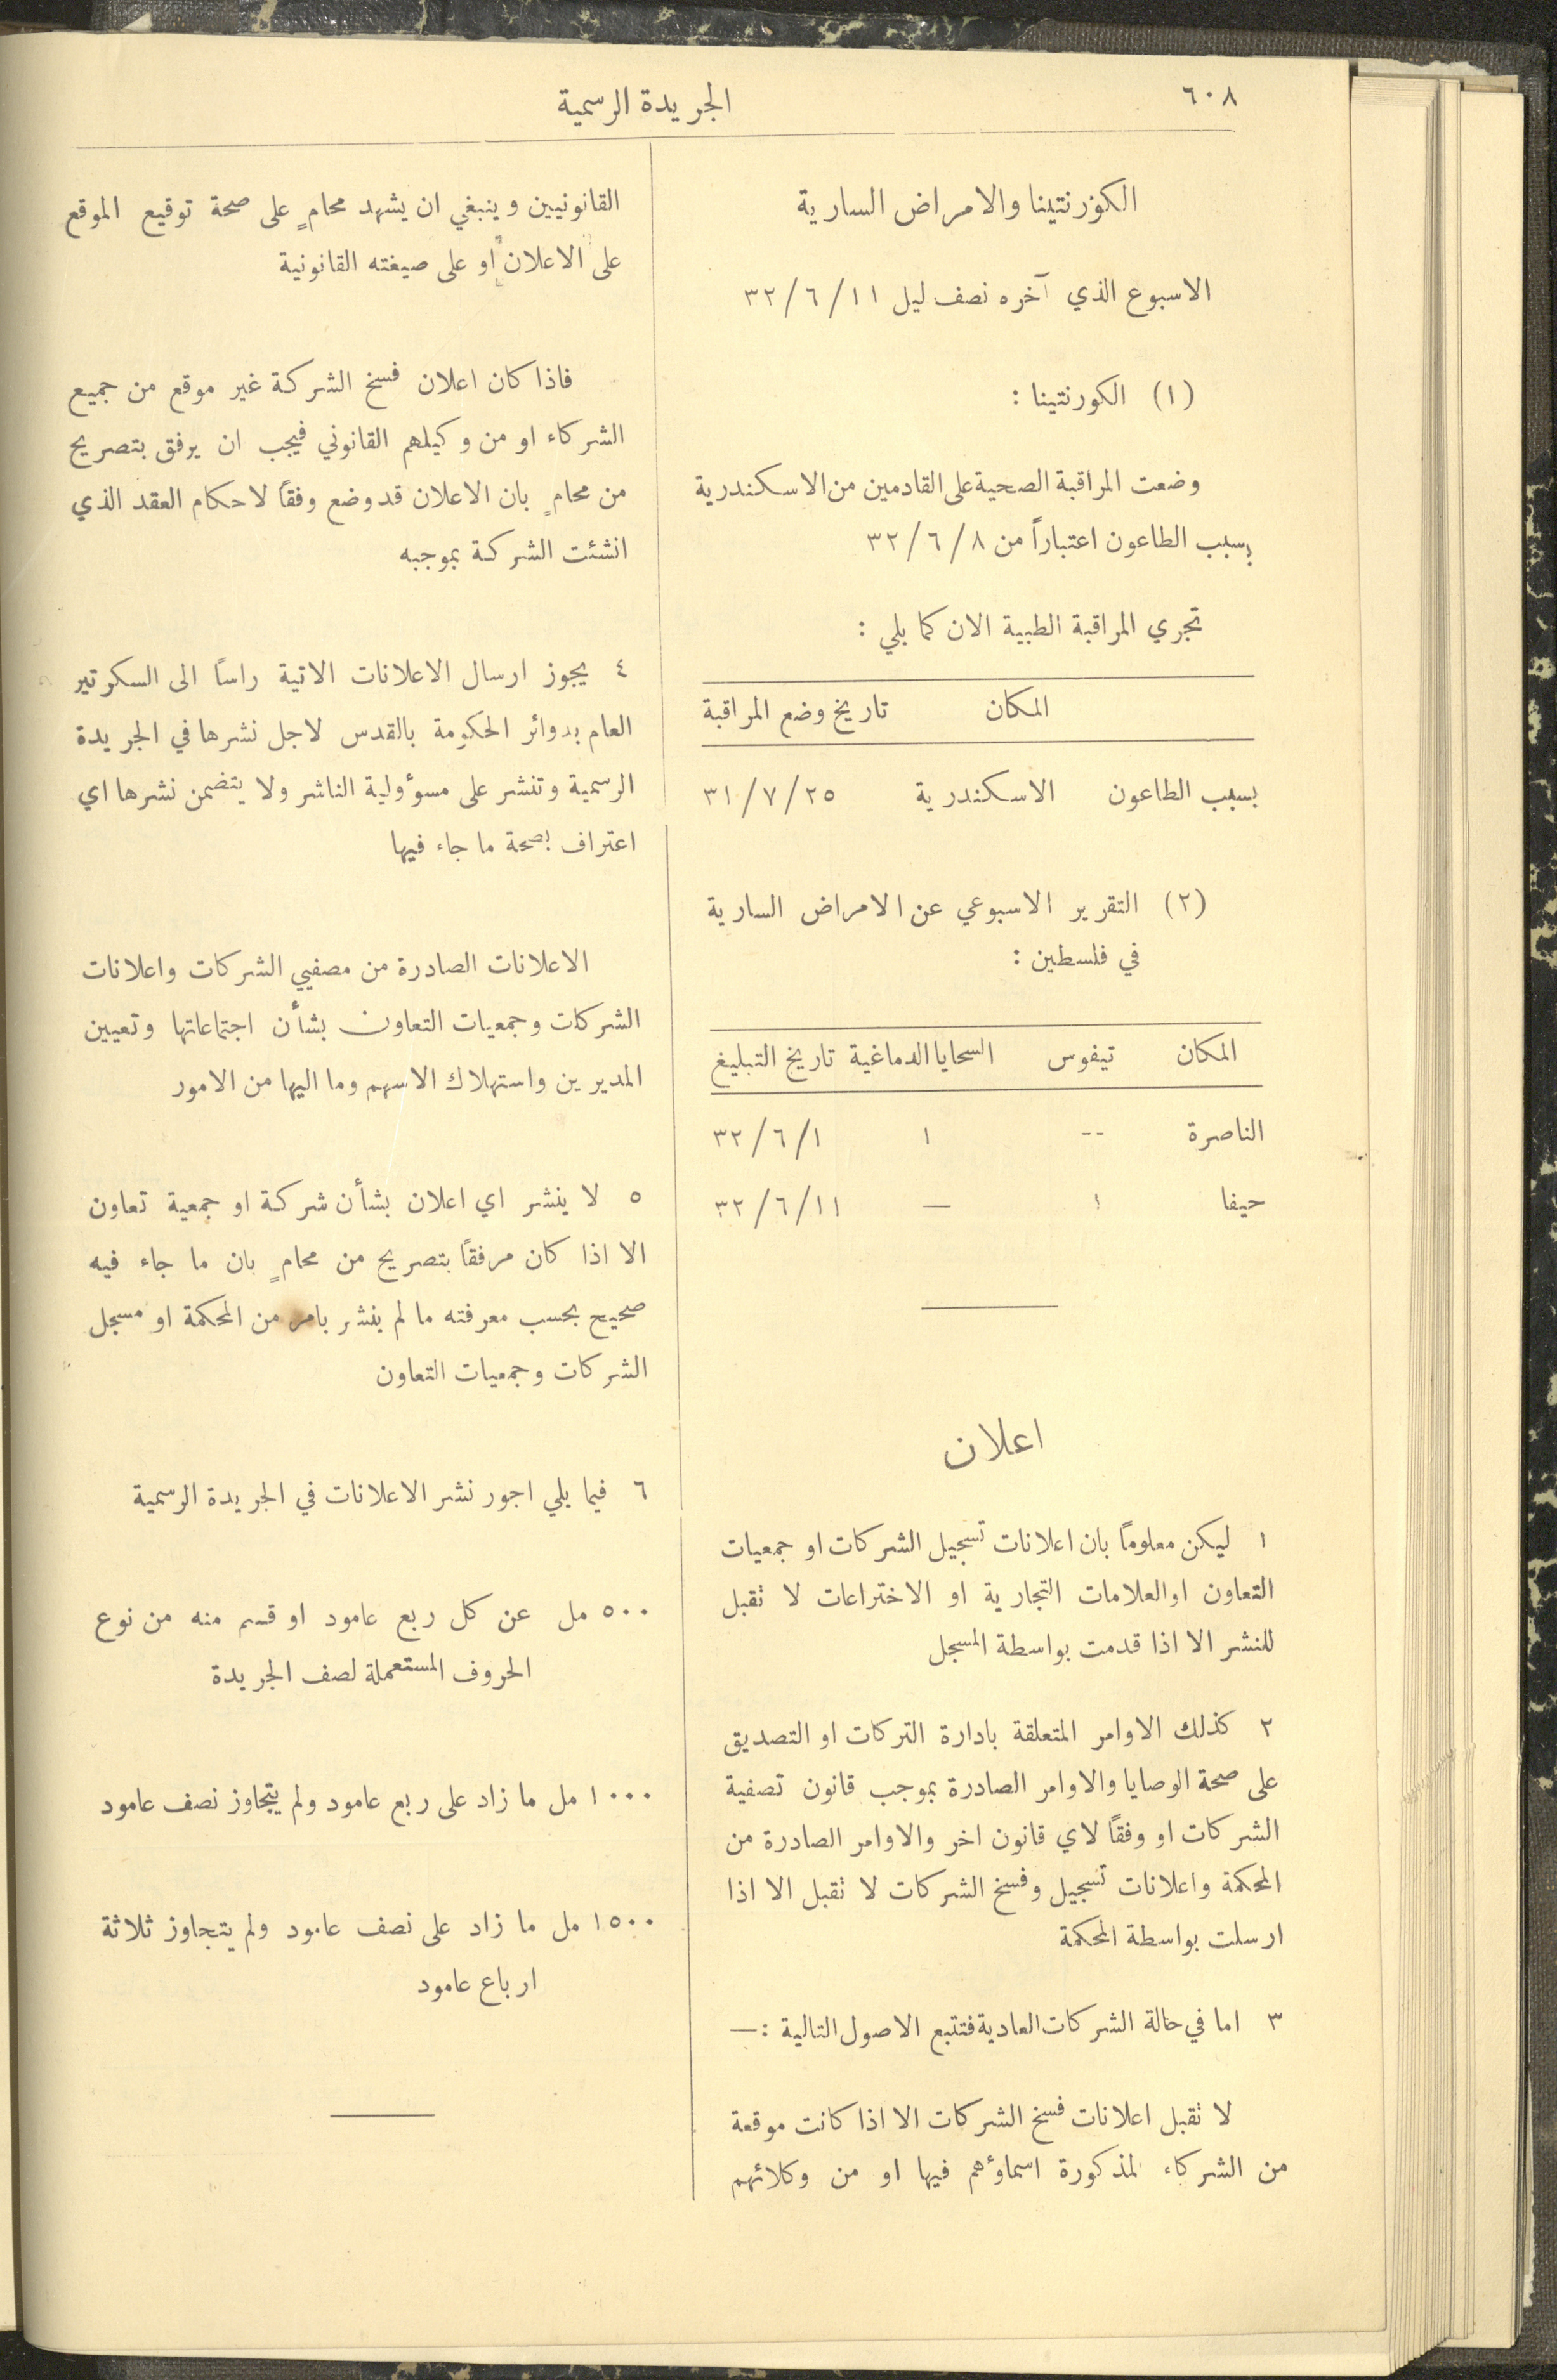 ٦٠٨
الجريدة الرسمية
الكورنتينا والامراض السارية
الاسبوع الذي آخره نصف ليل ١١/٦/٣٢
(١) الكورنتينا :
وضعت المراقبة الصحية على القادمين من الاسكندرية
بسبب الطاعون اعتباراً من ٨/٦/٣٢
تجري المراقبة الطبية الان كما يلي :
المكان تاريخ وضع المراقبة
بسبب الطاعون الاسكندرية ٢٥/٧/٣١
(٢) التقرير الاسبوعي عن الامراض السارية
في فلسطين :
المكان تيفوس السحايا الدماغية تاريخ التبليغ
الناصرة -- ١ ١/٦/٣٢
حيفا ١ — ١١/٦/٣٢
اعلان
١ ليكن معلوماً بان اعلانات تسجيل الشركات او جمعيات
التعاون او العلامات التجارية او الاختراعات لا تقبل
للنشر الا اذا قدمت بواسطة المسجل
٢ كذلك الاوامر المتعلقة بادارة التركات او التصديق
على صحة الوصايا والاوامر الصادرة بموجب قانون تصفية
الشركات او وفقاً لاي قانون اخر والاوامر الصادرة من
المحكمة واعلانات تسجيل وفسخ الشركات لا تقبل الا اذا
ارسلت بواسطة المحكمة
٣ اما في حالة الشركات العادية فتتبع الاصول التالية :—
لا تقبل اعلانات فسخ الشركات الا اذا كانت موقعة
من الشركاء لمذكورة اسماؤهم فيها او من وكلائهم
القانونيين وينبغي ان يشهد محامٍ على صحة توقيع الموقع
على الاعلان او على صيغته القانونية
فاذا كان اعلان فسخ الشركة غير موقع من جميع
الشركاء او من وكيلهم القانوني فيجب ان يرفق بتصريح
من محامٍ بان الاعلان قد وضع وفقاً لاحكام العقد الذي
انشئت الشركة بموجبه
٤ يجوز ارسال الاعلانات الاتية راساً الى السكرتير
العام بدوائر الحكومة بالقدس لاجل نشرها في الجريدة
الرسمية وتنشر على مسؤولية الناشر ولا يتضمن نشرها اي
اعتراف بصحة ما جاء فيها
الاعلانات الصادرة من مصفيي الشركات واعلانات
الشركات وجمعيات التعاون بشأن اجتماعاتها وتعيين
المديرين واستهلاك الاسهم وما اليها من الامور
٥ لا ينشر اي اعلان بشأن شركة او جمعية تعاون
الا اذا كان مرفقاً بتصريح من محامٍ بان ما جاء فيه
صحيح بحسب معرفته ما لم ينشر بامر من المحكمة او مسجل
الشركات وجمعيات التعاون
٦ فيما يلي اجور نشر الاعلانات في الجريدة الرسمية
٥٠٠ مل عن كل ربع عامود او قسم منه من نوع
الحروف المستعملة لصف الجريدة
١٠٠٠ مل ما زاد على ربع عامود ولم يتجاوز نصف عامود
١٥٠٠ مل ما زاد على نصف عامود ولم يتجاوز ثلاثة
ارباع عامود